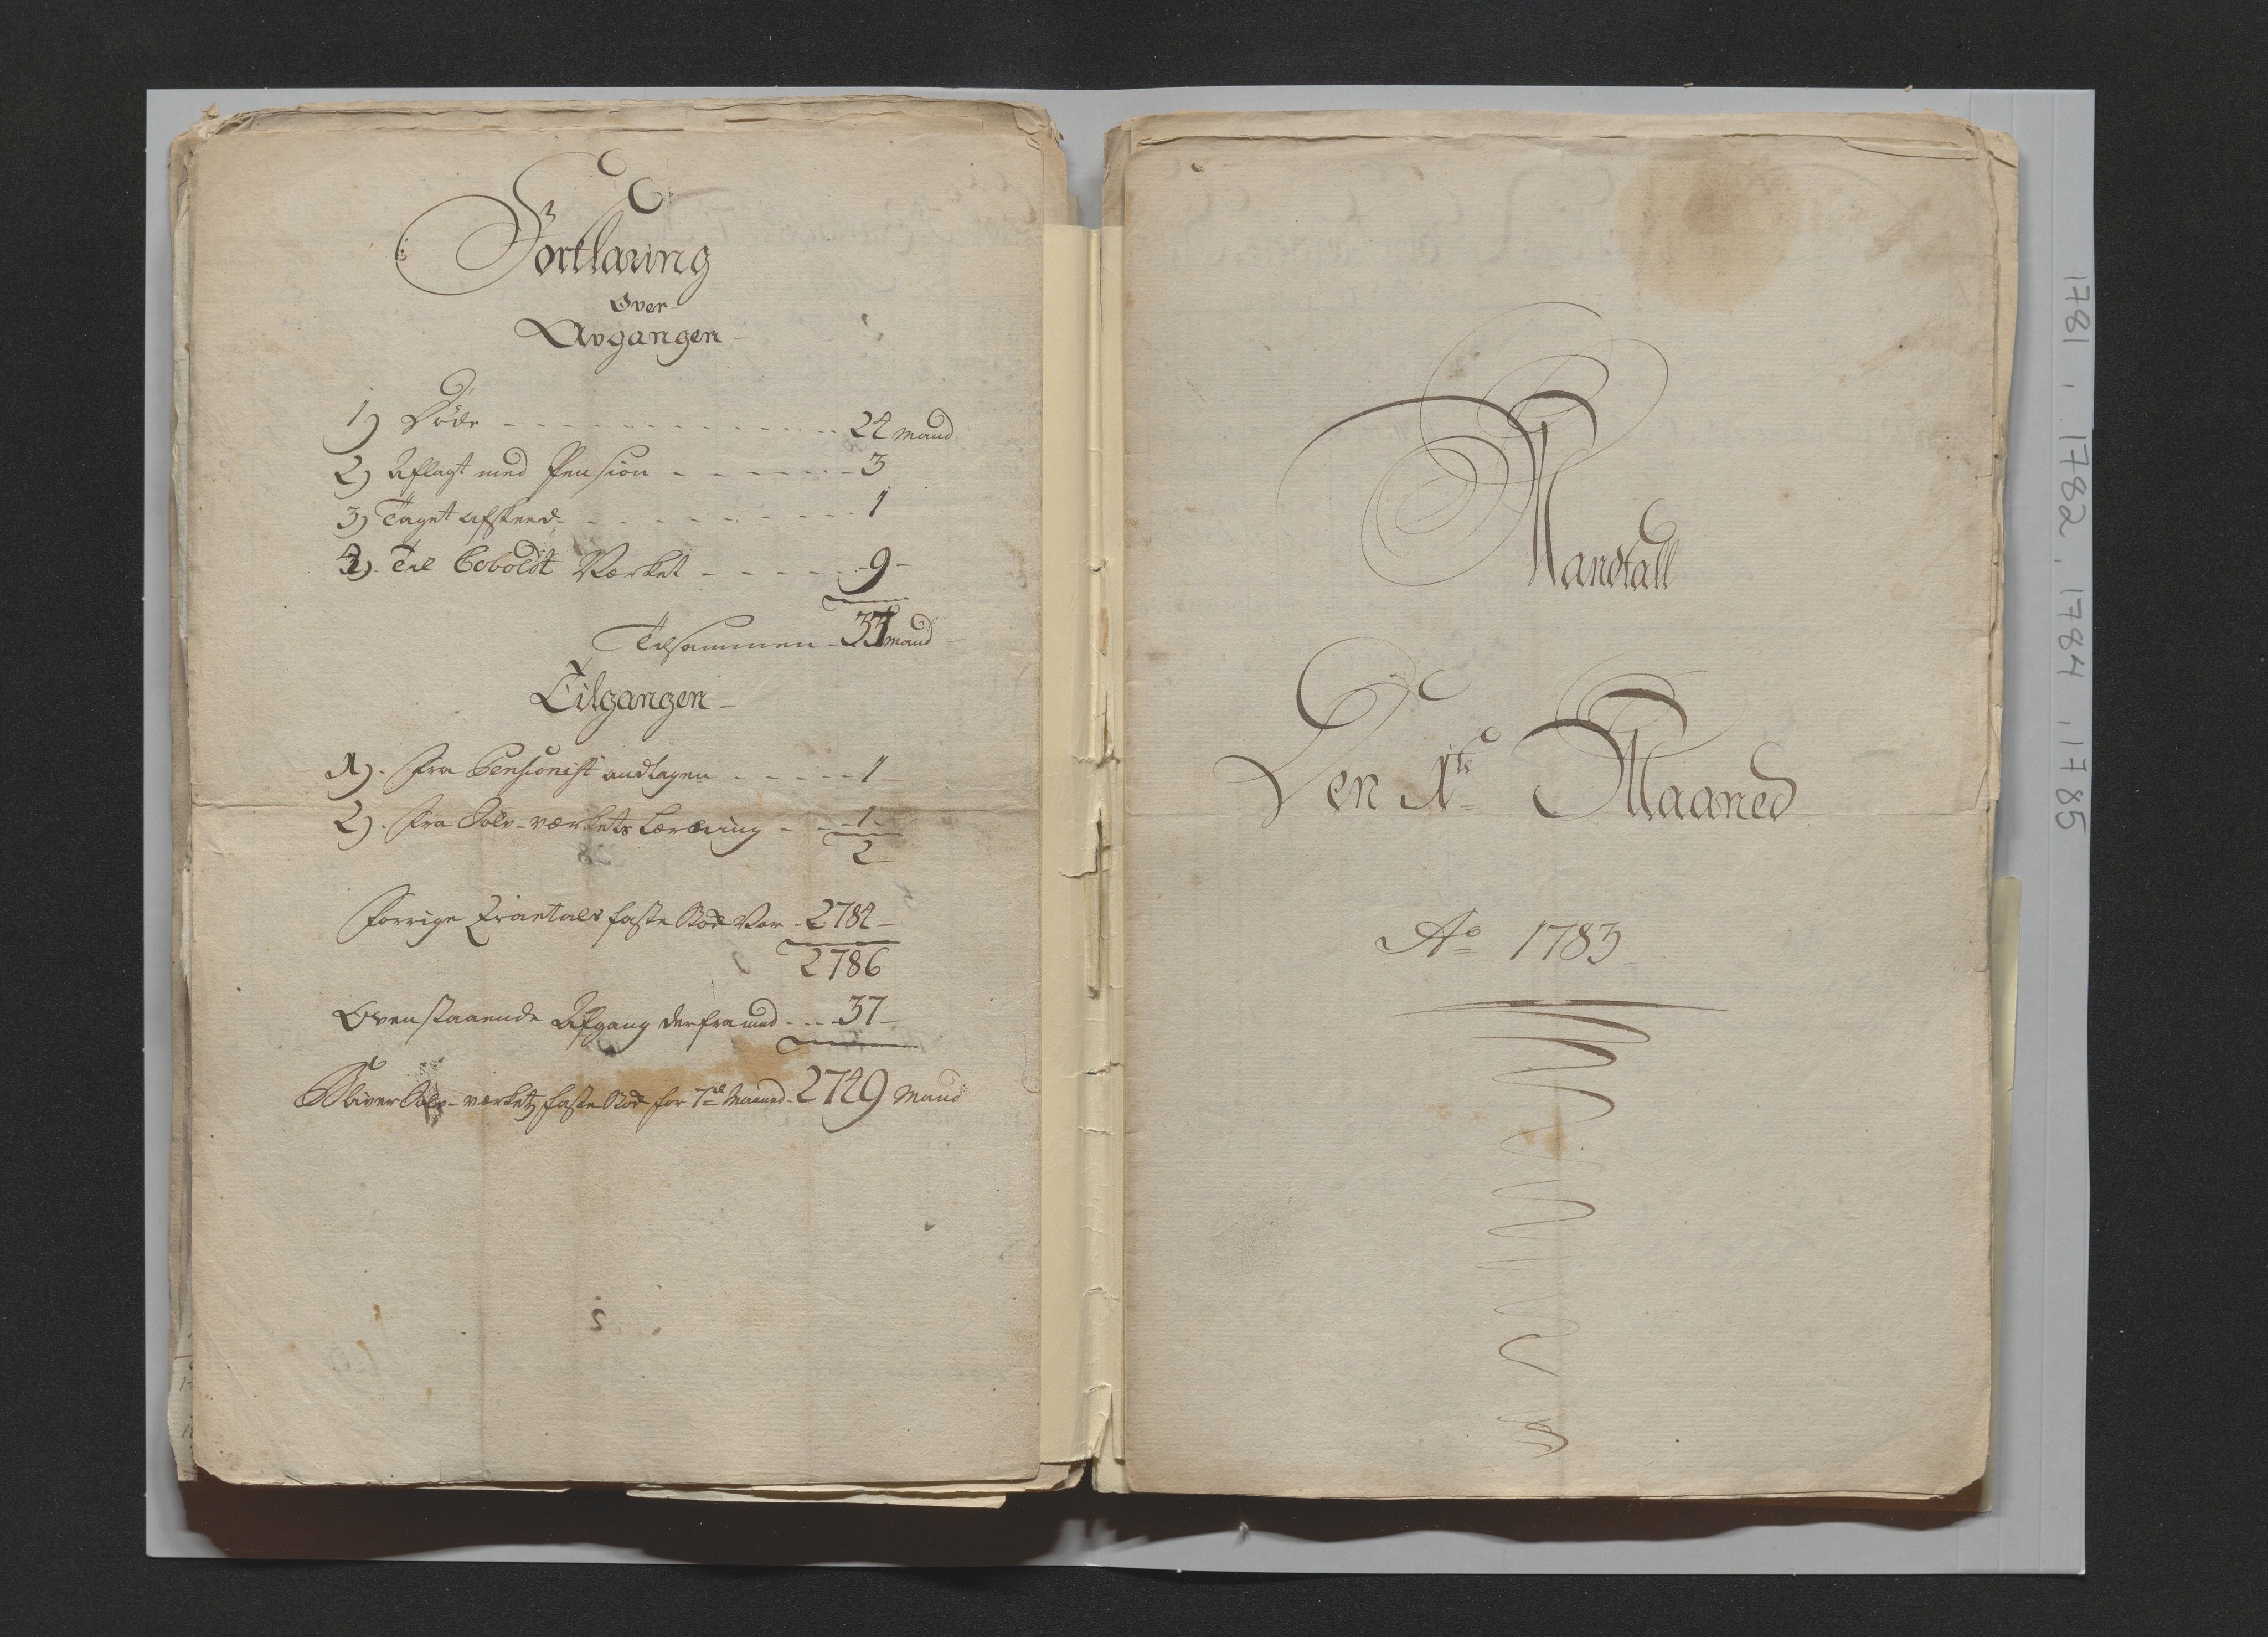 Forklaring
Over
Avgangen
1) Døde 24 mand
2) Aflagt med Pension 3
3) Taget afskeed 1
4) Til Coboldt Værket 9
Tilsammen 37 mand
Tilgangen
1). fra Pensionist 1
2). fra Sølv-værkets 1
2
forrige faste Stok Var 2784
2786
Ovenstaaende Afgang derfra 37
Bliver Sølv-værkets faste Stok for 7de Maaned 2749 Mand
Mandtall
Den 1te Maaned
Ao 1783
1781, 1782, 1784, 1785